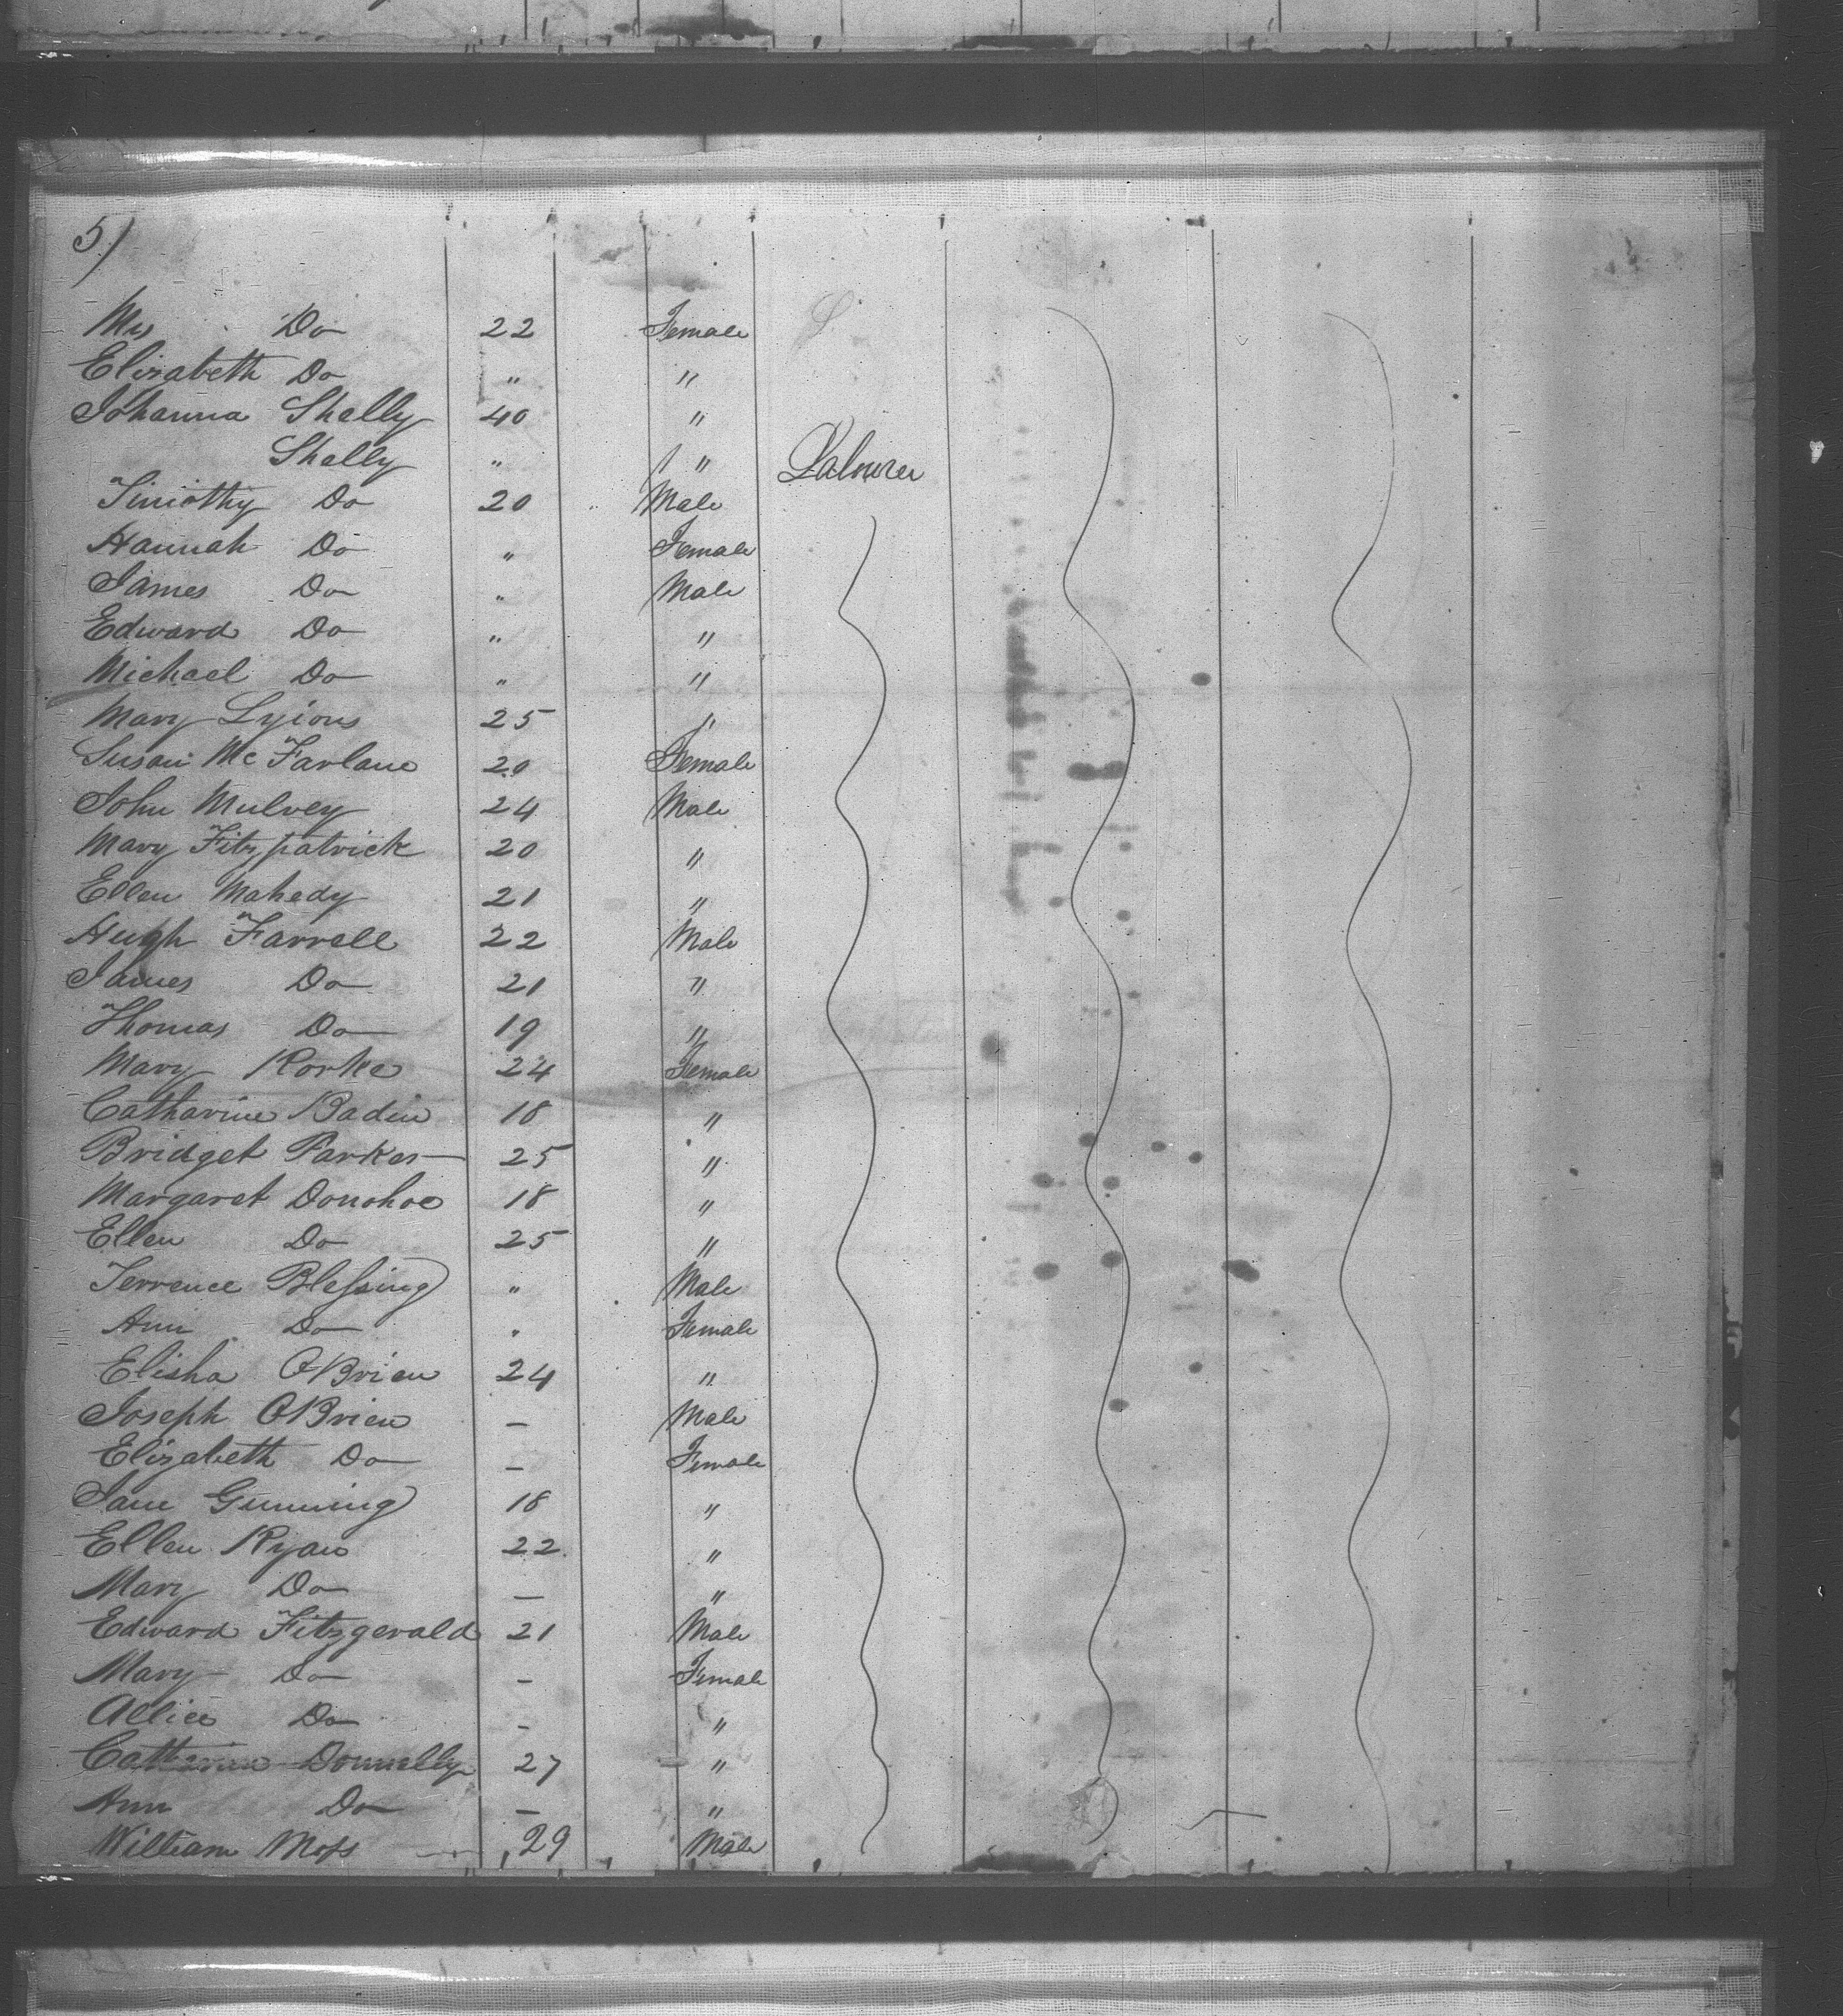 5)
Mrs Do 22 Female
Elizabeth Do " "
Johanna Shelly 40 "
Shelly " " Labourer
Timothy Do 20 Male
Hannah Do " Female
James Do " Male
Edward Do " "
Michael Do " "
Mary Lyions 25 "
Susan McFarlane 20 Female
John Mulvey 24 Male
Mary Fitzpatrick 20 "
Ellen Mahedy 21 "
Hugh Farrell 22 Male
James Do 21 "
Thomas Do 19 "
Mary Rorke 24 Female
Catharine Badin 18 "
Bridget Parker 25 "
Margaret Donohoe 18 "
Ellen Do 25 "
Terrence Blessing " Male
Ann Do " Female
Elisha OBrien 24 "
Joseph OBrien — Male
Elizabeth Do — Female
Jane Gunning 18 "
Ellen Ryan 22 "
Mary Do — "
Edward Fitzgerald 21 Male
Mary Do - Female
Allice Do - "
Catherine Donnelly 27 "
Ann Do — "
William Moss 29 Male